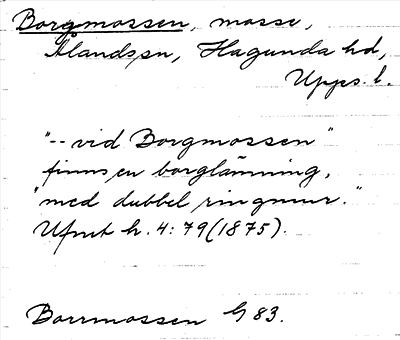 Borgmossen, mosse,
Ålands sn, Hagunda hd,
Upps. l.
"-- vid Borgmossen"
finns en borglämning,
"med dubbel ringmur."
Ufmt h. 4: 79 (1875).
Borrmossen G 83.